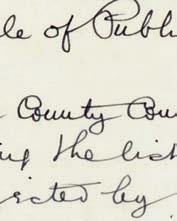 le of Publi
County Cou
ing the list
ected by